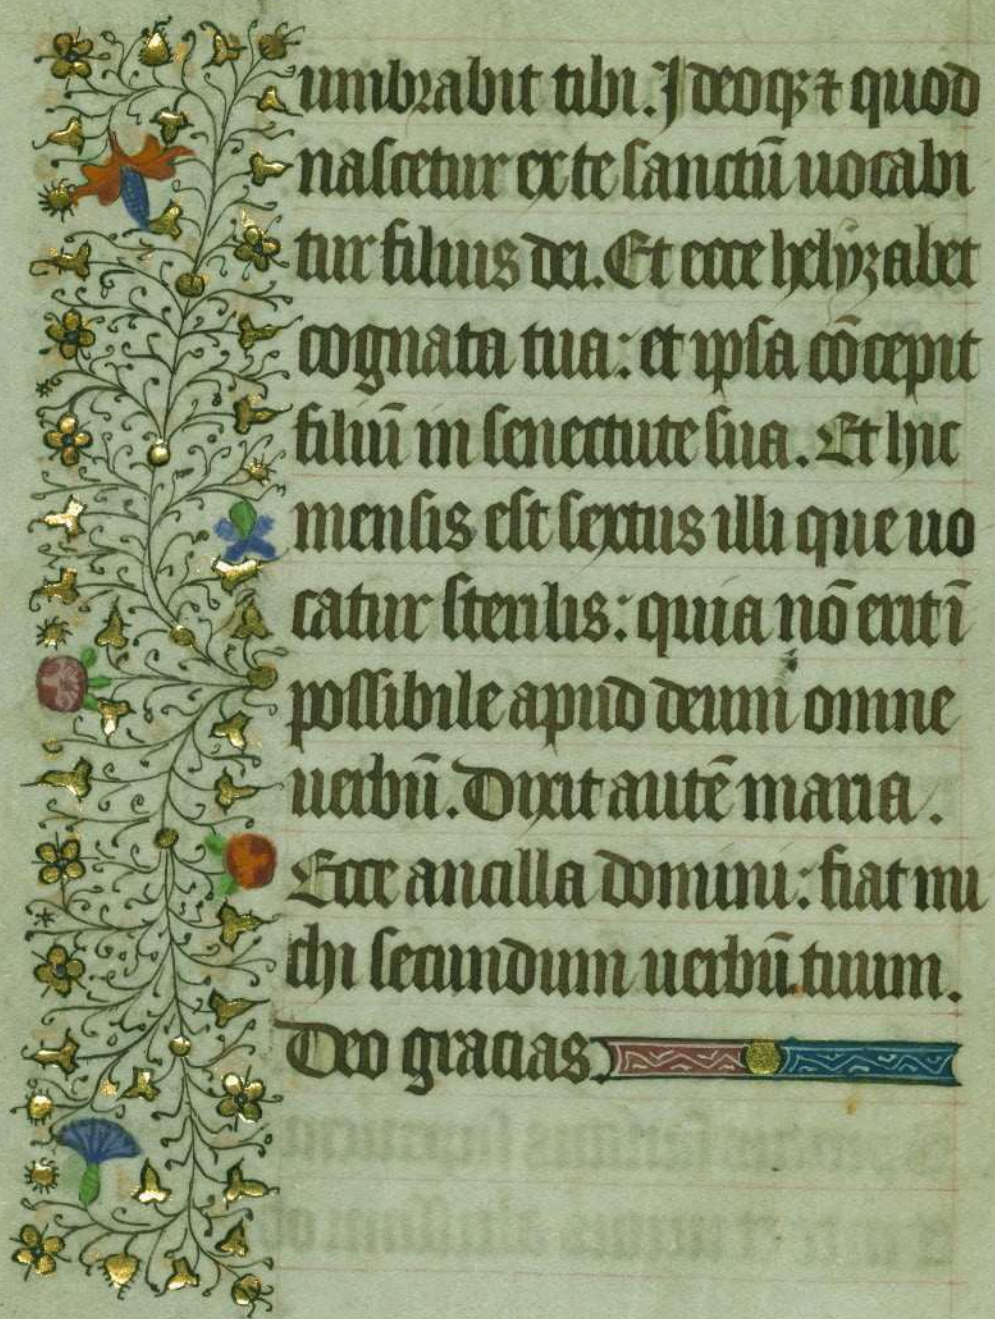 umbrabit tibi. Ideoqꝫ ⁊ quod
nascetur ex te sanctū uocabi
tur filius dei. Et ecce helyzabet
cognata tua: et ipsa cōcepit
filiū in senectute sua. Et hic
mensis est sextus illi que uo
catur sterilis: quia nō erit ī
possibile apud deum omne
uerbū. Dixit autē maria.
Ecce ancilla domini: fiat mi
chi secundum uerbū tuum.
Deo gracias.